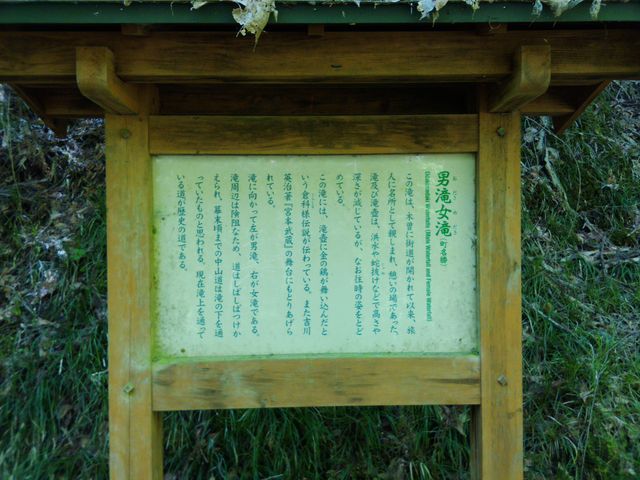 男滝女滝（町名勝）
おだきめだき
Odaki-medaki Waterfalls (Male Waterfall and Female Waterfall)
この滝は、木曽に街道が開かれて以来、旅
人に名所として親しまれ、憩いの場であった、
滝及び滝壺は、洪水や蛇抜けなどで高さや
深さが減じているが、なお往時の姿をとど
めている。
この滝には、滝壺に金の鶏が舞い込んだと
いう倉科様伝説が伝わっている。また吉川
英治著『宮本武蔵』の舞台にもとりあげら
れている。
滝に向かって左が男滝、右が女滝である。
滝周辺は険阻なため、道はしばしばつけか
えられ、幕末頃までの中山道は滝の下を通
っていたものと思われる。現在滝上を通って
いる道が歴史の道である。